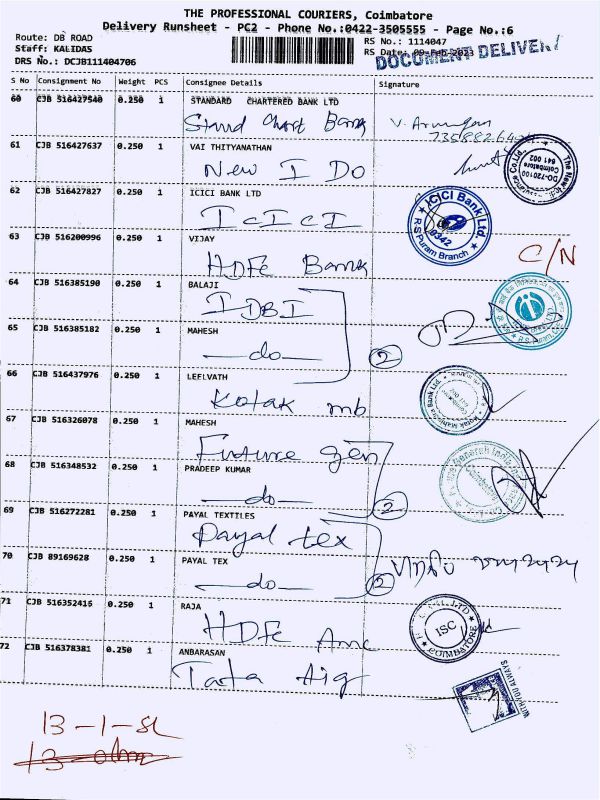 THE PROFESSIONAL COURIERS, Coimbatore
Delivery Runsheet - PC2 - Phone No.:0422-3505555 - Page No.:6
Route: DB ROAD
RS No.: 1114047
Staff: KALIDAS
RS Date: 09-Feb-2023
DOCUMENT DELIVERY
DRS No.: DCJB111404706
S No Consignment No Weight PCS Consignee Details Signature
60 CJB 516427540 0.250 1 STANDARD CHARTERED BANK LTD
Stand Chart Bank
61 CJB 516427637 0.250 1 VAI THITYANATHAN
New I Do
DO-720100
Coimbatore
641 002
62 CJB 516427827 0.250 1 ICICI BANK LTD
ICICI
ICICI Bank Ltd.
0342
R S Puram Branch
63 CJB 516200996 0.250 1 VIJAY
HDFC Bank
C/N
64 CJB 516385190 0.250 1 BALAJI
IDBI
65 CJB 516385182 0.250 1 MAHESH
—do— 2
66 CJB 516437976 0.250 1 LEELVATH
Kotak mb
Kotak Mahindra Bank Ltd.
67 CJB 516326078 0.250 1 MAHESH
Future Gen
68 CJB 516348532 0.250 1 PRADEEP KUMAR
—do— 2
69 CJB 516272281 0.250 1 PAYAL TEXTILES
Payal tex
70 CJB 89169628 0.250 1 PAYAL TEX
—do— 2
71 CJB 516352416 0.250 1 RAJA
HDFC Amc
ISC
COIMBATORE
72 CJB 516378381 0.250 1 ANBARASAN
Tata Aig
WITH YOU ALWAYS
13-1-SL